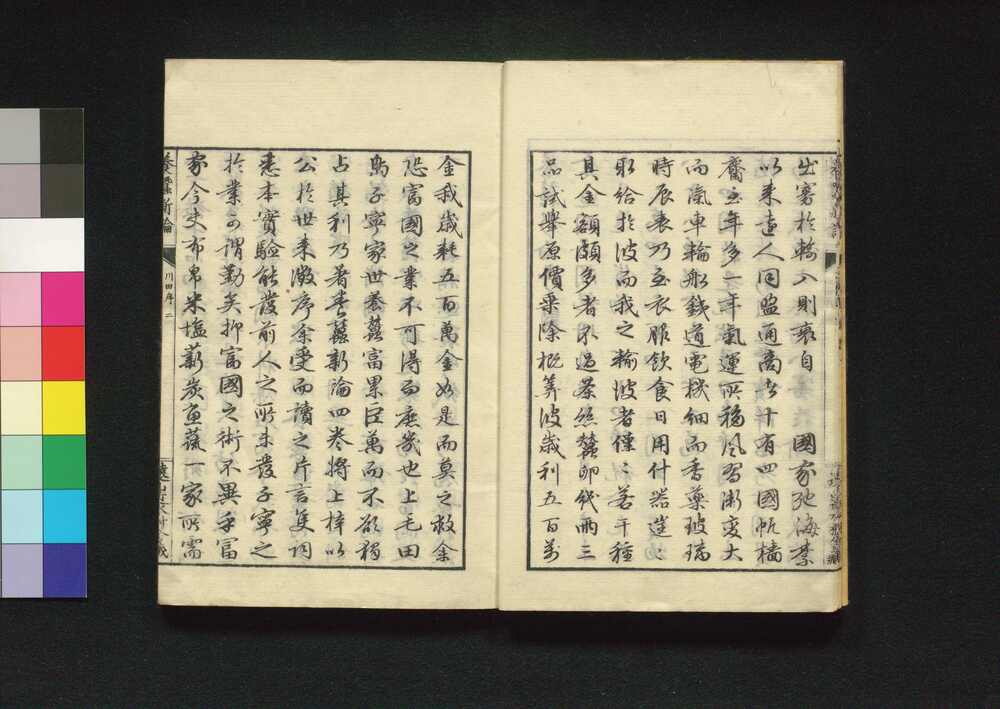 出寡於輸入則衰自　國家弛海禁
以来遠人同盟通商者十有四國帆檣
齎至年多一年氣運所移風習漸変大
而滊車輪船銭道電機細而香薬玻璃
時辰表乃至衣服飲食日用什器造〻
取給於彼而我之輸彼者僅〻若干種
其金額頗多者不過茶絲蠶卵紙両三
品試舉原價乗除概筭彼歳利五百萬
金我歳耗五百萬金如是而莫之救余
恐富國之業不可得而庶幾也上毛田
島子寧家世養蠶富累巨萬而不欲獨
占其利乃著養蠶新論四巻将上梓以
公於世来徴序余受而讀之片言隻詞
悉本實驗能發前人之所未發子寧之
於業可謂勤矣抑富國之術不異乎富
家今夫布帛米塩薪炭魚蔬一家所需
養蠶新論
川田序 二